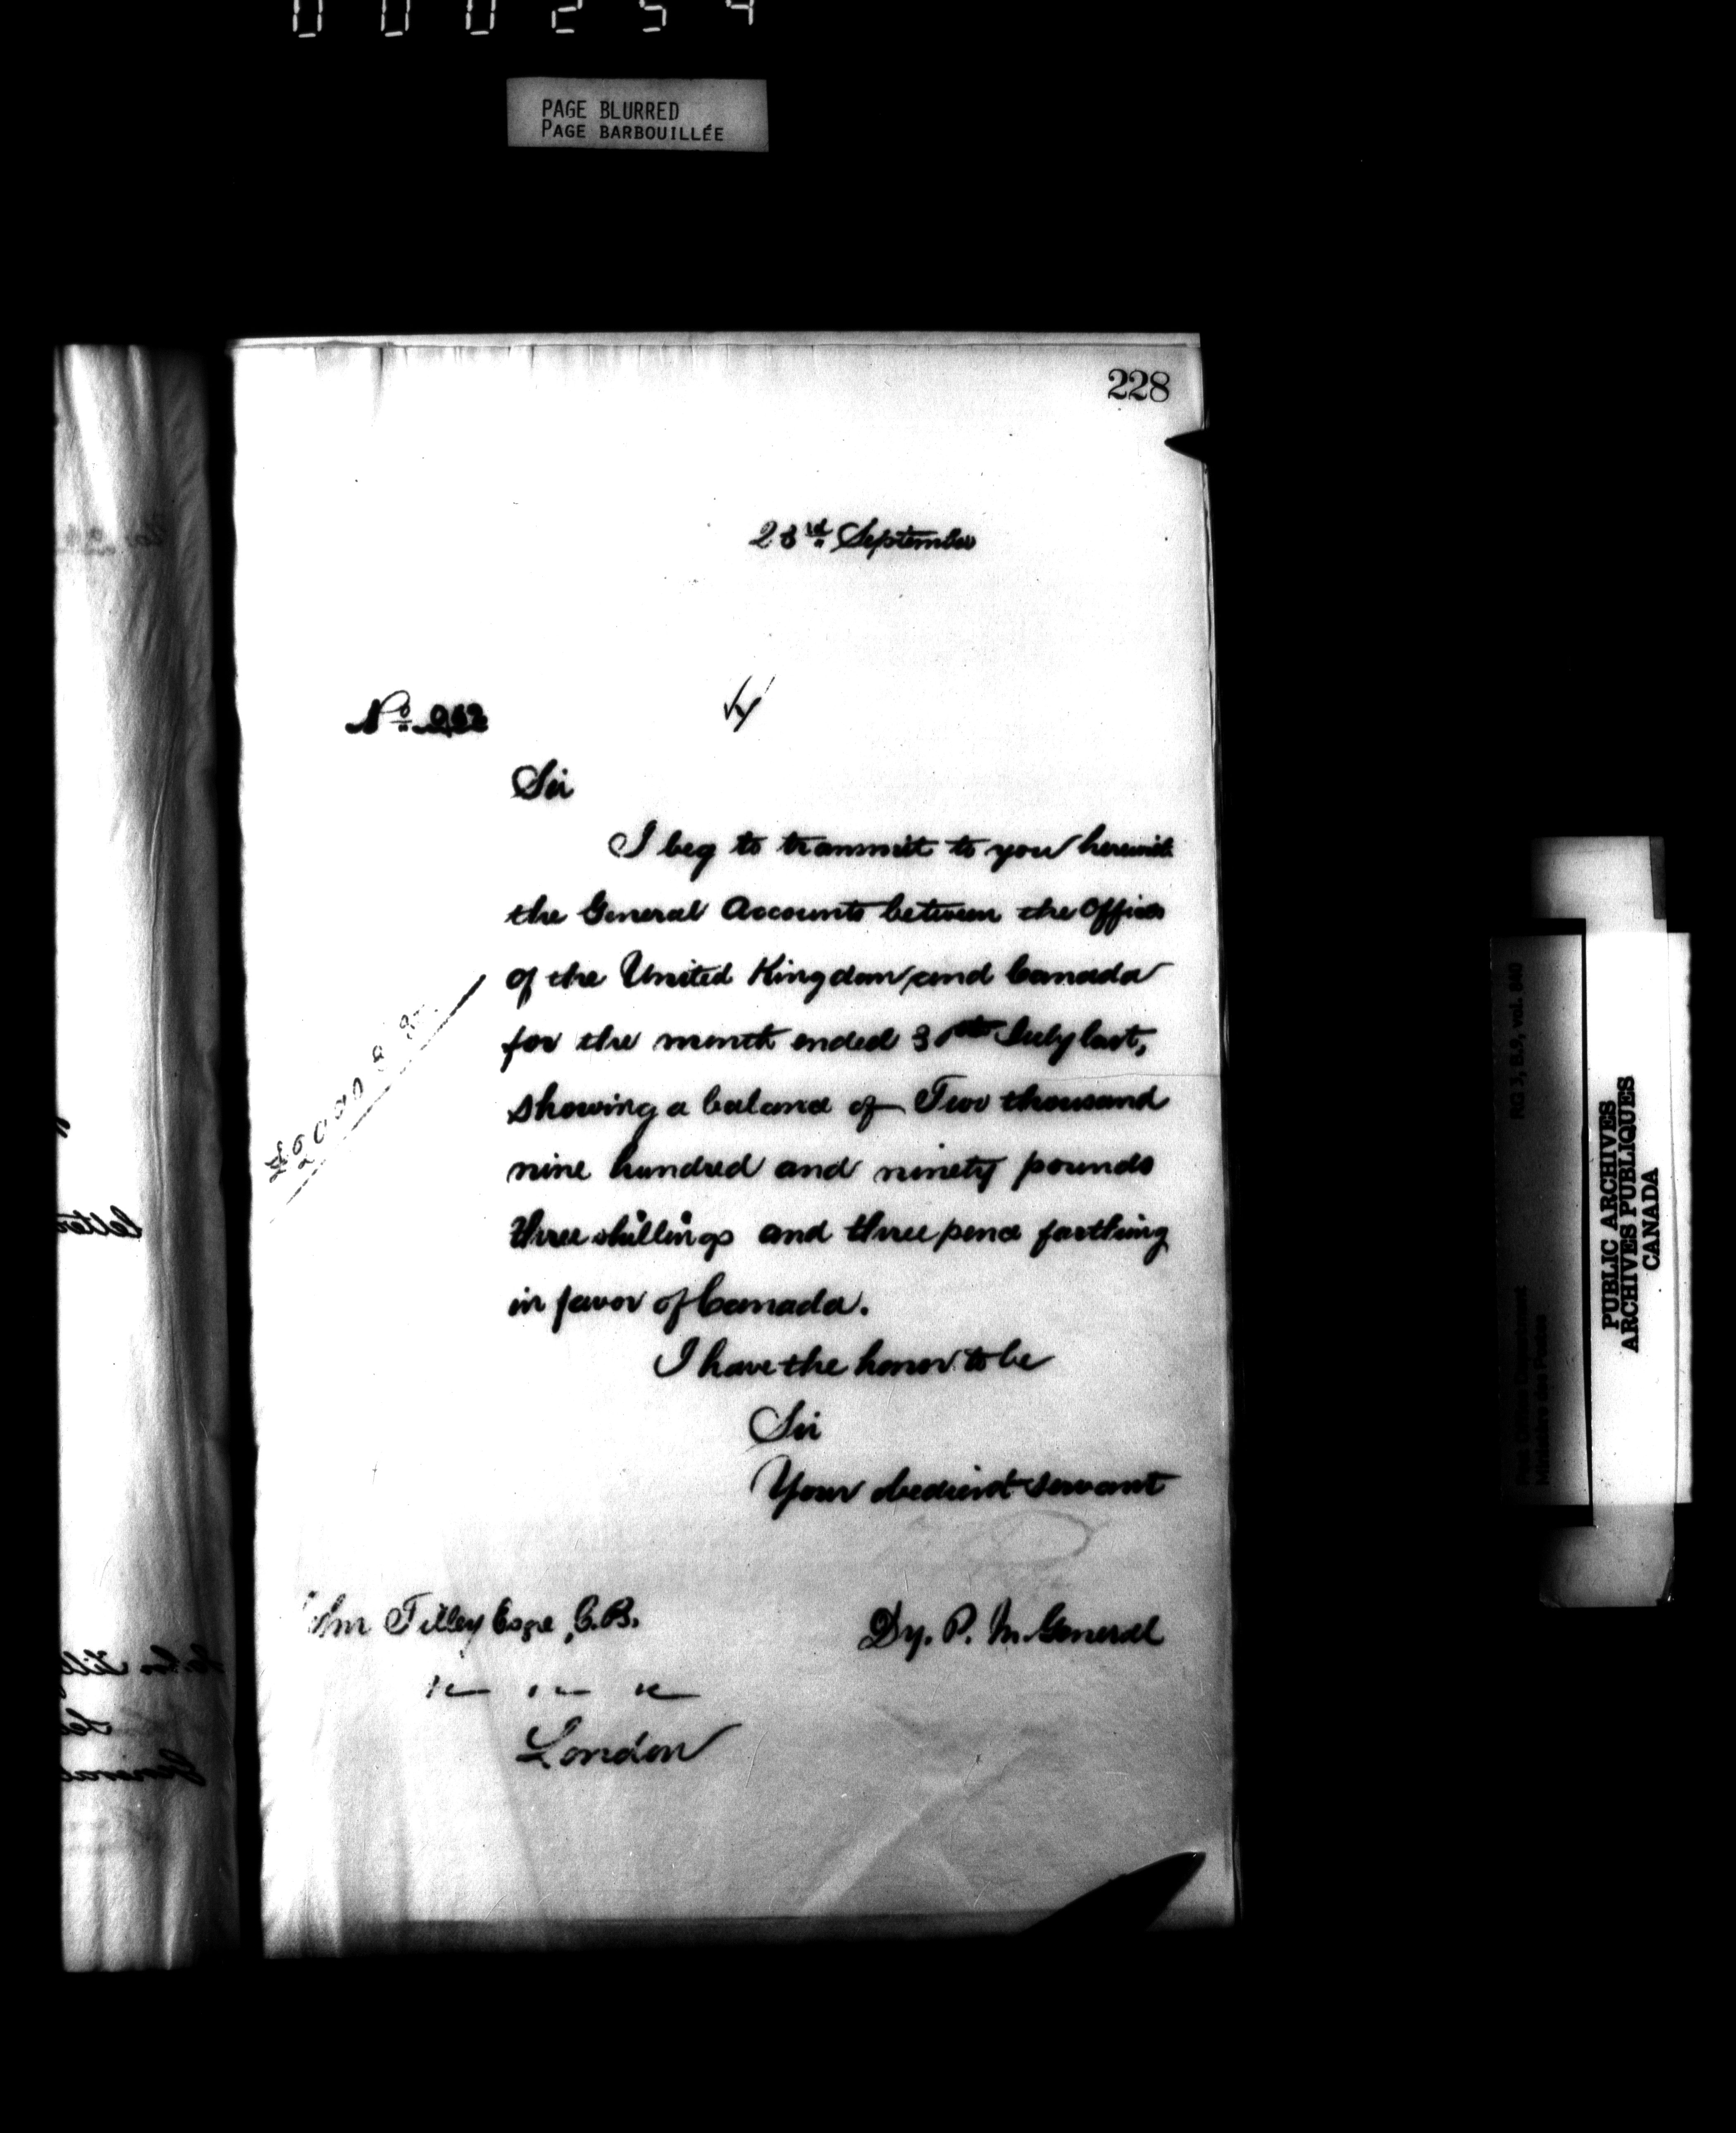 000254
PAGE BLURRED
PAGE BARBOUILLÉE
228
23rd September
No
Sir
I beg to transmit to you herewith
the General Accounts between the Offices
of the United Kingdom and Canada
for the month ended July last,
showing a balance of Two thousand
nine hundred and ninety pounds
three shillings and three pence farthing
in favor of Canada.
I have the honor to be
Sir
Your obedient servant
Dy. P. M. General
John Tilley Esqre, C.B.
London
RG 3, B.9, vol.
Post Office Department
Ministère des Postes
PUBLIC ARCHIVES
ARCHIVES PUBLIQUES
CANADA